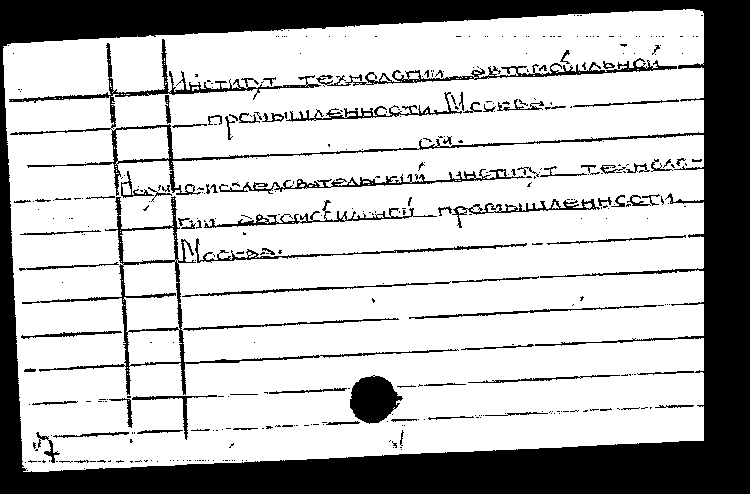 Институт технологии автомобильной
промышленности. Москва.
см.
Научно-исследовательский институт техноло-
гии автомобильной промышленности.
Москва.
7